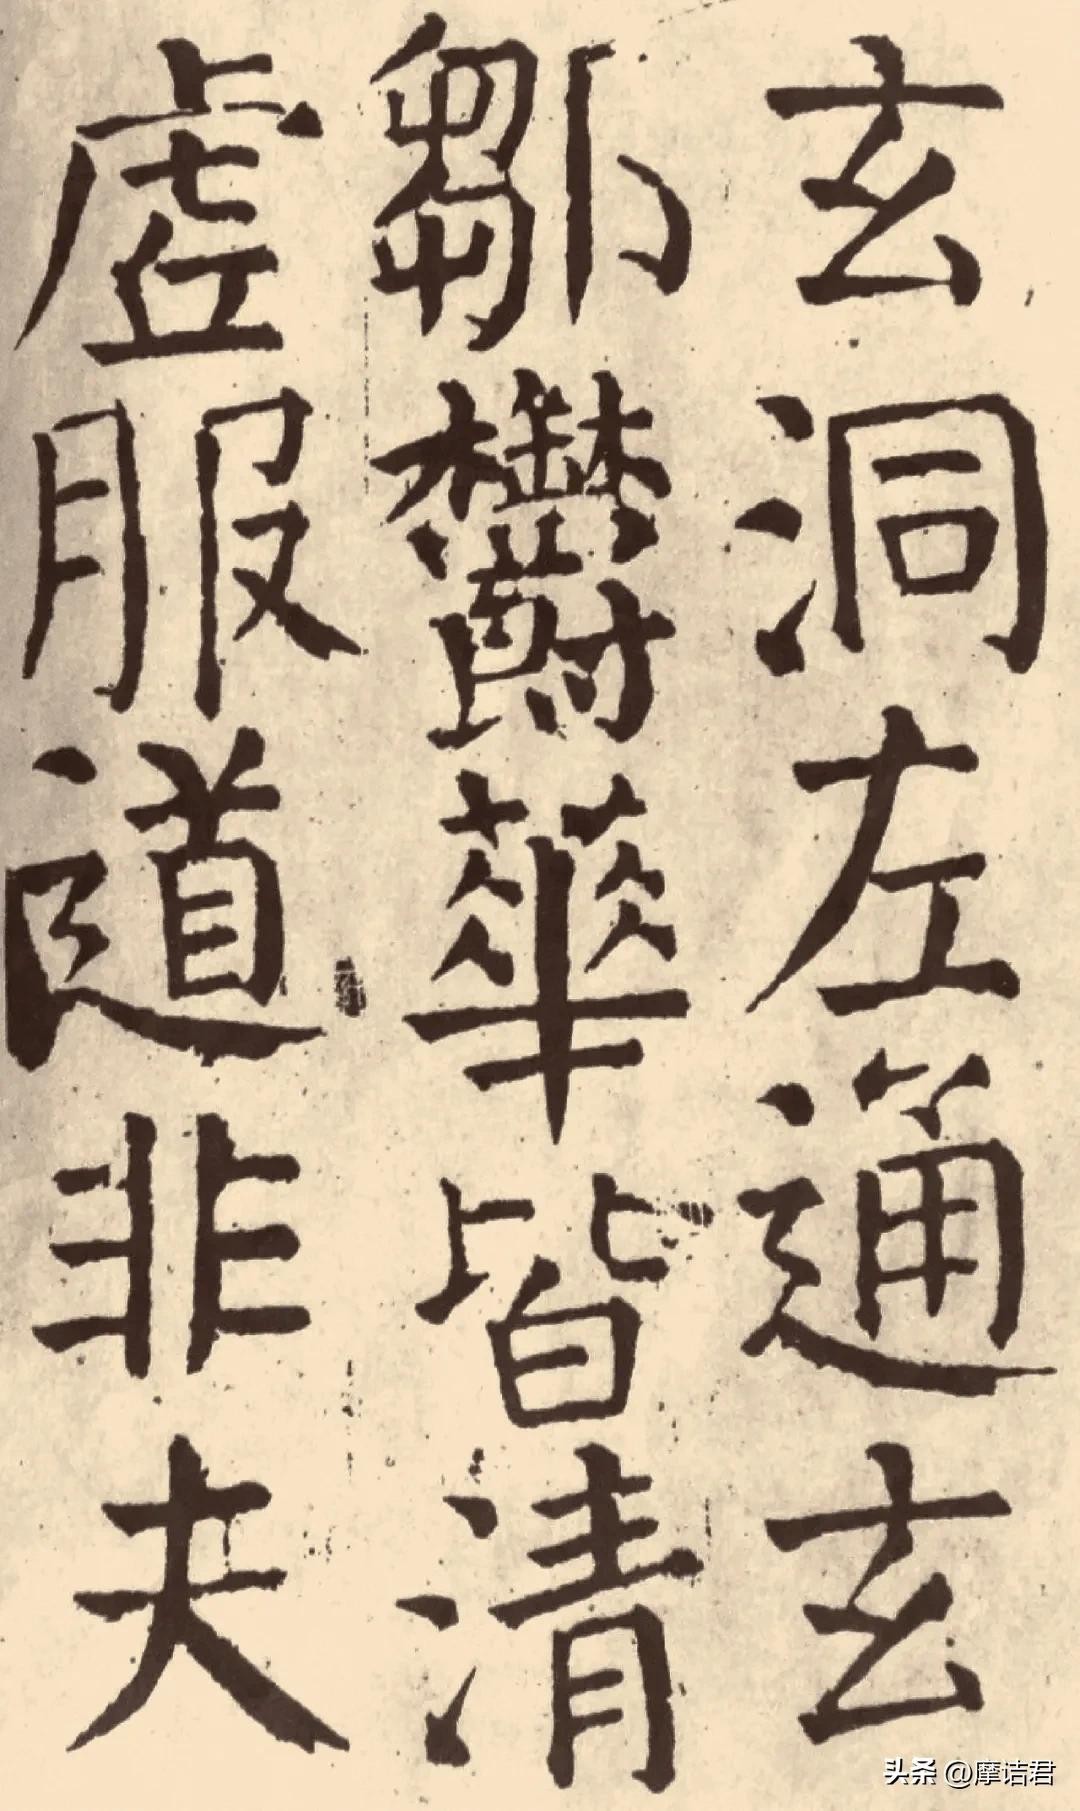 玄洞左通玄
鄒欝華皆清
虛服道非夫
头条 @摩诘君